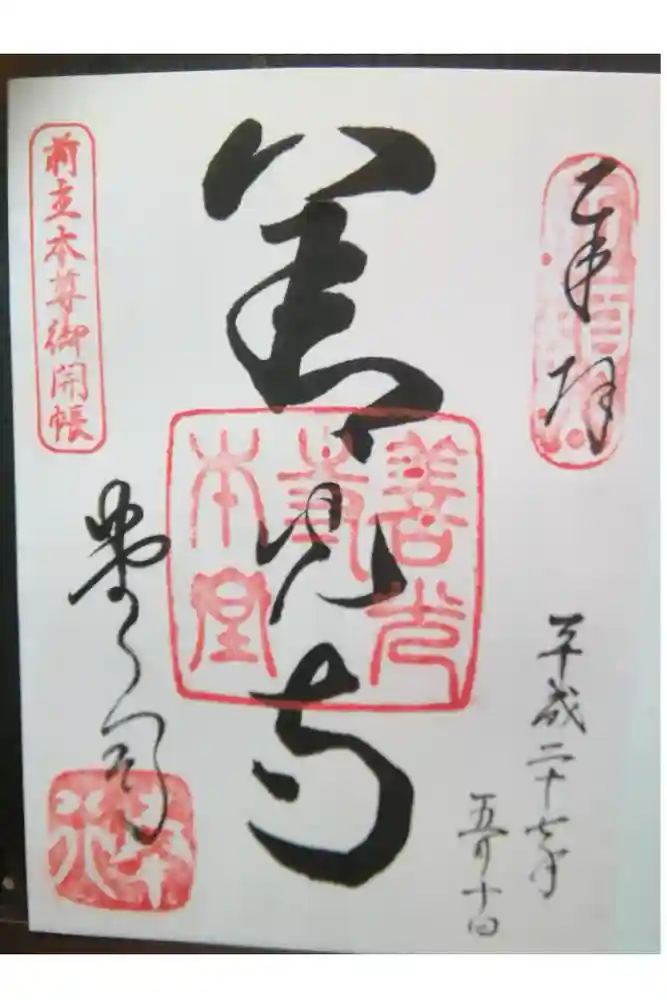 奉拝
平成二十七年
五月十日
善光寺
善光
寺
本堂
前立本尊御開帳